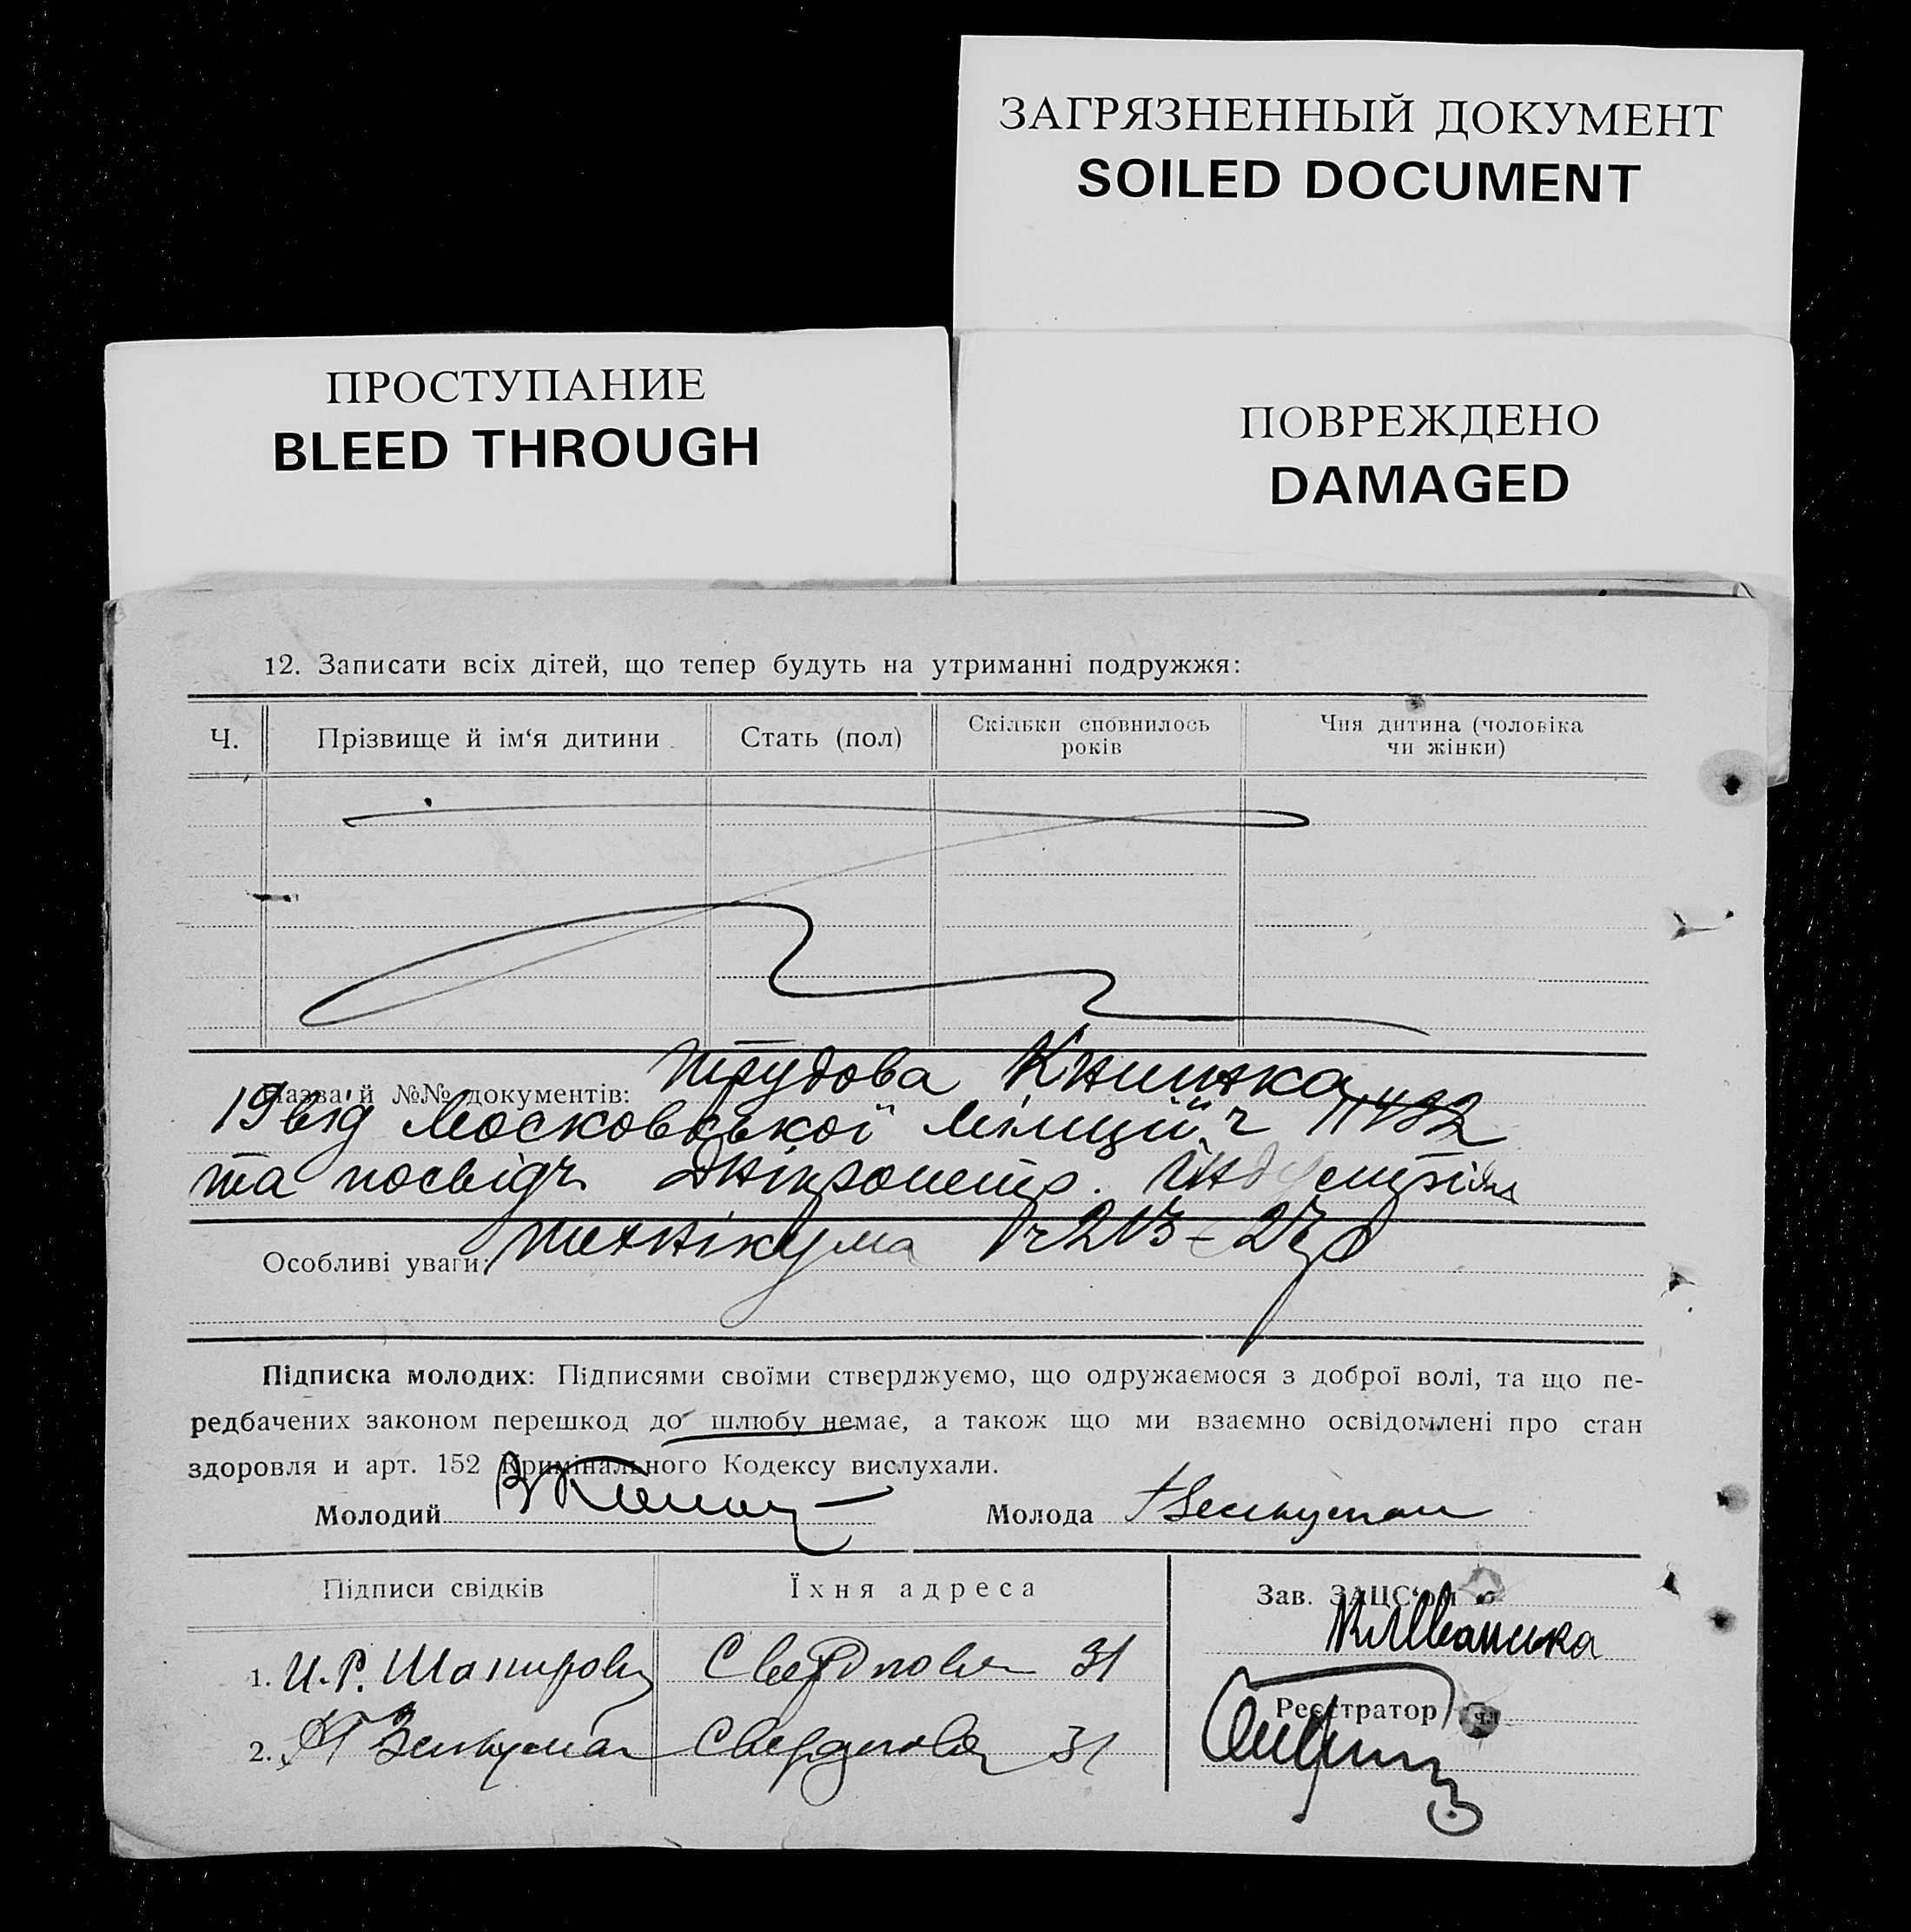 ЗАГРЯЗНЕННЫЙ ДОКУМЕНТ
SOILED DOCUMENT
ПРОСТУПАНИЕ
BLEED THROUGH
ПОВРЕЖДЕНО
DAMAGED
12. Записати всіх дітей, що тепер будуть на утриманні подружжя:
Ч.
Прізвище й ім‘я дитини
Стать (пол)
Скільки сповнилось
років
Чия дитина (чоловіка
чи жінки)
Назва й №№ документів: трудова Книжка
від Московської Міліції ч
та посвідч Дніпропетр.
Особливі уваги: технікума
Підписка молодих: Підписями своїми стверджуємо, що одружаємося з доброї волі, та що пе-
редбачених законом перешкод до шлюбу немає, а також що ми взаємно освідомлені про стан
здоровля и арт. 152 Кримінального Кодексу вислухали.
Молодий
Молода
Підписи свідків
Їхня адреса
Зав. ЗАЦС‘ом
1. И. Р. Шапиро Свердлова 31
2. Свердлова 31
Реєстратор